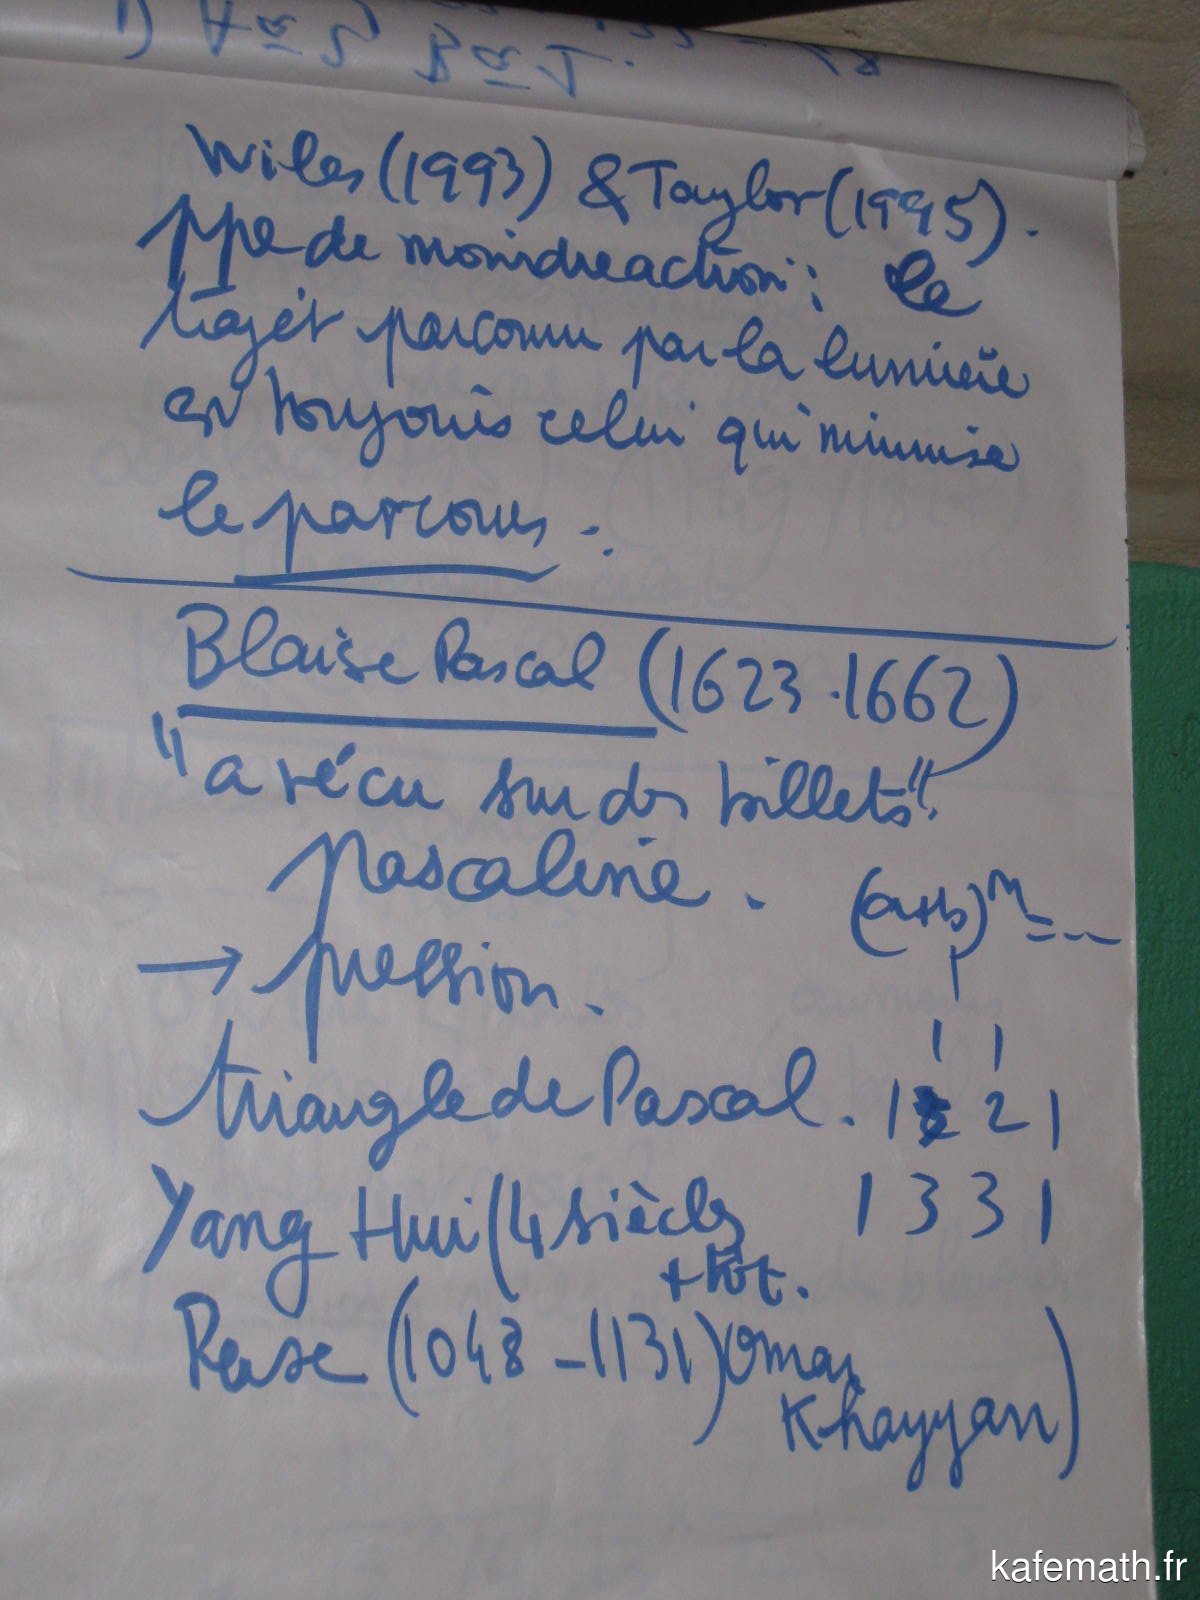 Wiles (1993) & Taylor (1995).
ppe de moindre action : le
trajet parcouru par la lumière
est toujours celui qui minimise
le parcours.
Blaise Pascal (1623-1662)
"a vécu sur des billets".
Pascaline.
(a+b)^n = ...
→ pression.
1
1 1
triangle de Pascal. 1 2 1
Yang Hui (4 siècles 1 3 3 1
+ tôt.
Perse (1048-1131) Omar
Khayyan)
kafemath.fr